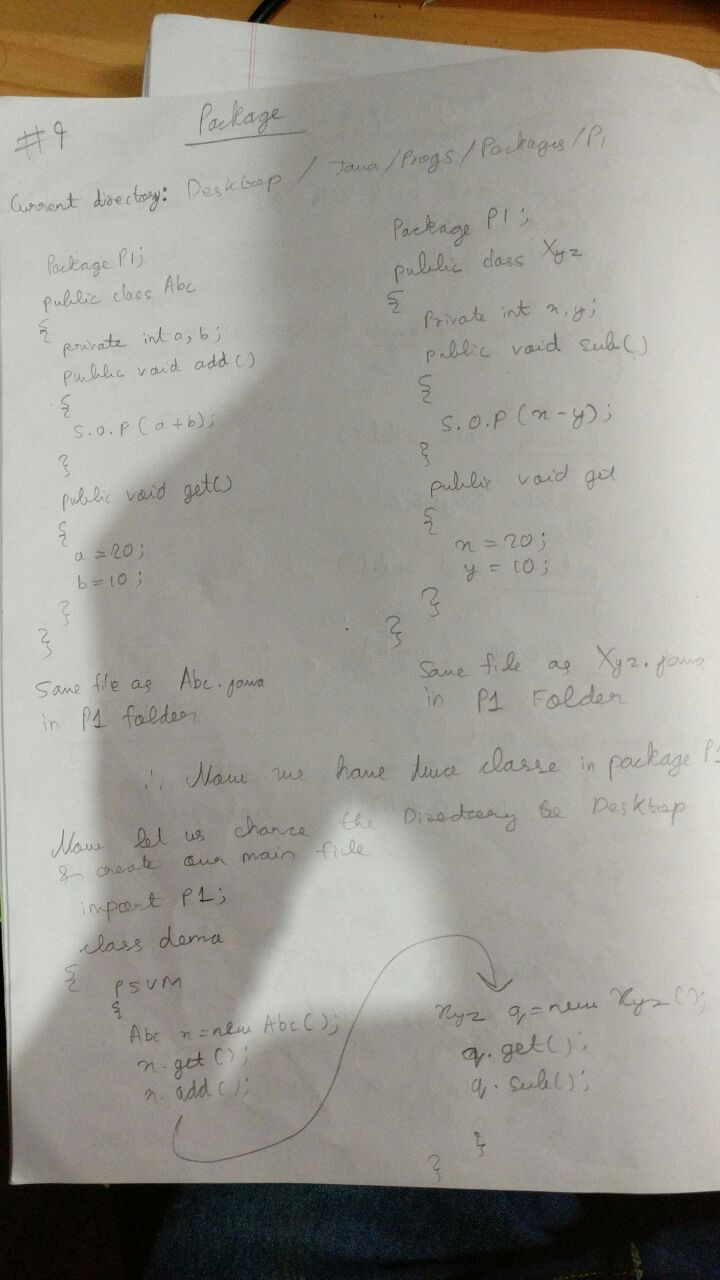 #9
Package
Current directory: Desktop / Java/Progs/Packages/P1
Package P1;
public class Abc
{
private int a, b;
public void add()
{
S.O.P (a+b);
}
public void get()
{
a = 20;
b = 10;
}
}
Save file as Abc.java
in P1 folder
Package P1;
public class Xyz
{
Private int x, y;
public void sub()
{
S.O.P (x-y);
}
public void get
{
x = 20;
y = 10;
}
}
Save file as Xyz.java
in P1 Folder
∴ Now we have two classe in package P1
Now let us change the Directory to Desktop
& create our main file
import P1;
class demo
{
PSVM
{
Abc x = new Abc();
x.get();
x.add();
Xyz q = new Xyz();
q.get();
q.sub();
}
}